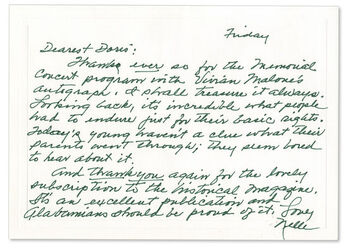 Friday
Dearest Doris:
Thanks ever so for the Memorial
Concert program with Vivian Malone's
autograph. I shall treasure it always.
Looking back, it's incredible what people
had to endure just for their basic rights.
Today's young haven't a clue what their
parents went through; they seem bored
to hear about it.
And thank you again for the lovely
subscription to the historical magazine.
It's an excellent publication and
Alabamians should be proud of it. Love,
Nelle